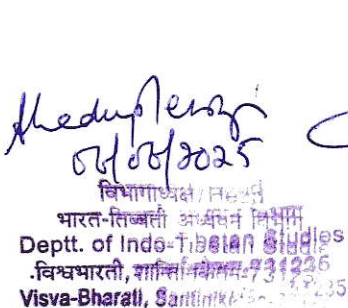 06/06/2025
विभागाध्यक्ष/Head
भारत-तिब्बती अध्ययन विभाग
Deptt. of Indo-Tibetan Studies
विश्वभारती, शान्तिनिकेतन-731235
Visva-Bharati, Santiniketan